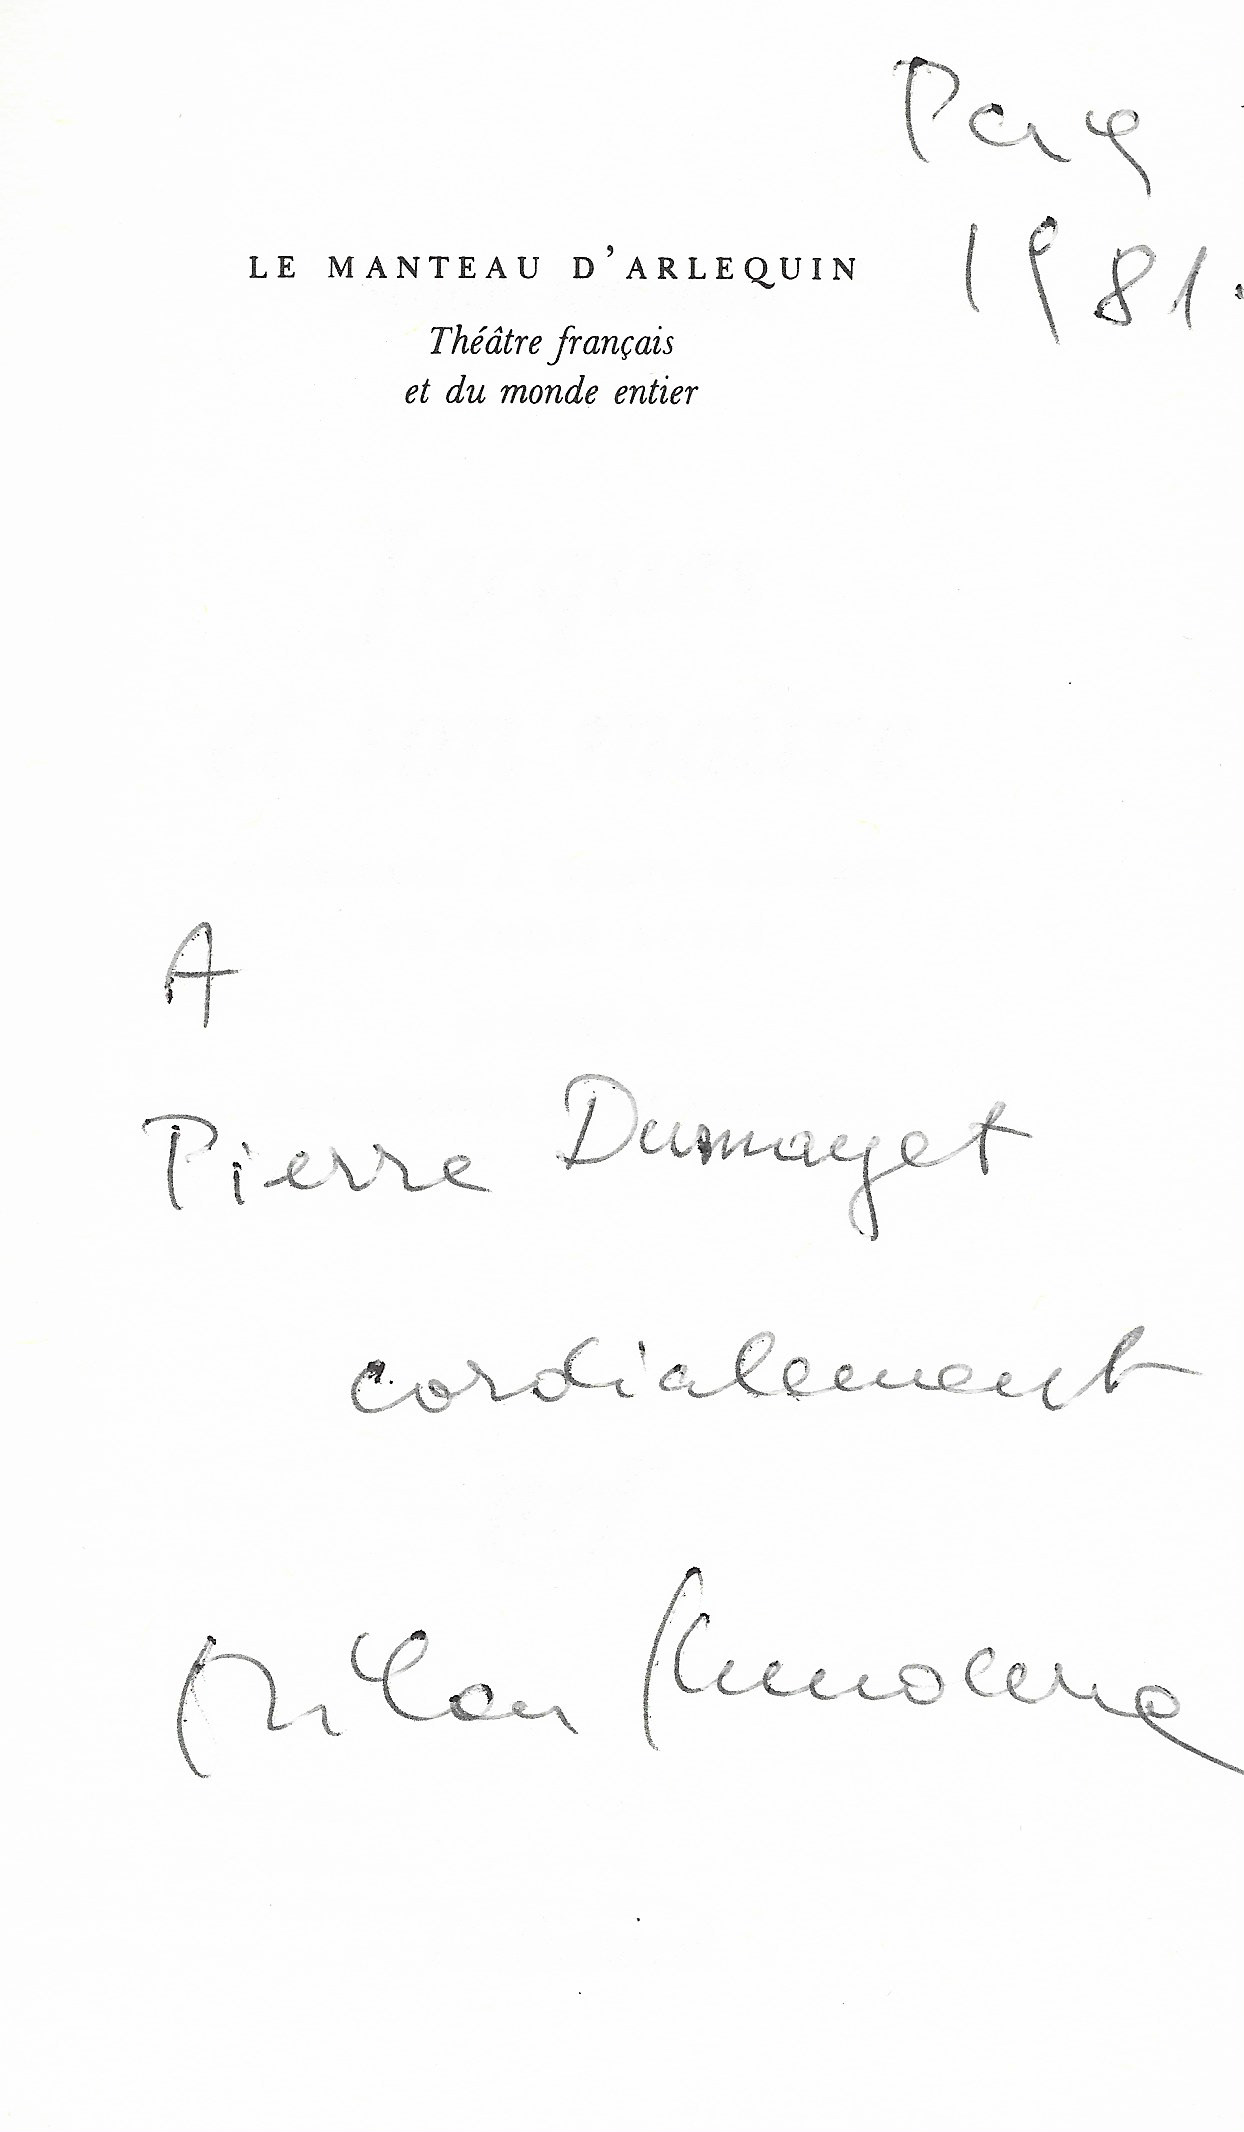 Paris
1981.
LE MANTEAU D'ARLEQUIN
Théâtre français
et du monde entier
A
Pierre Dumayet
cordialement
Milan Kundera